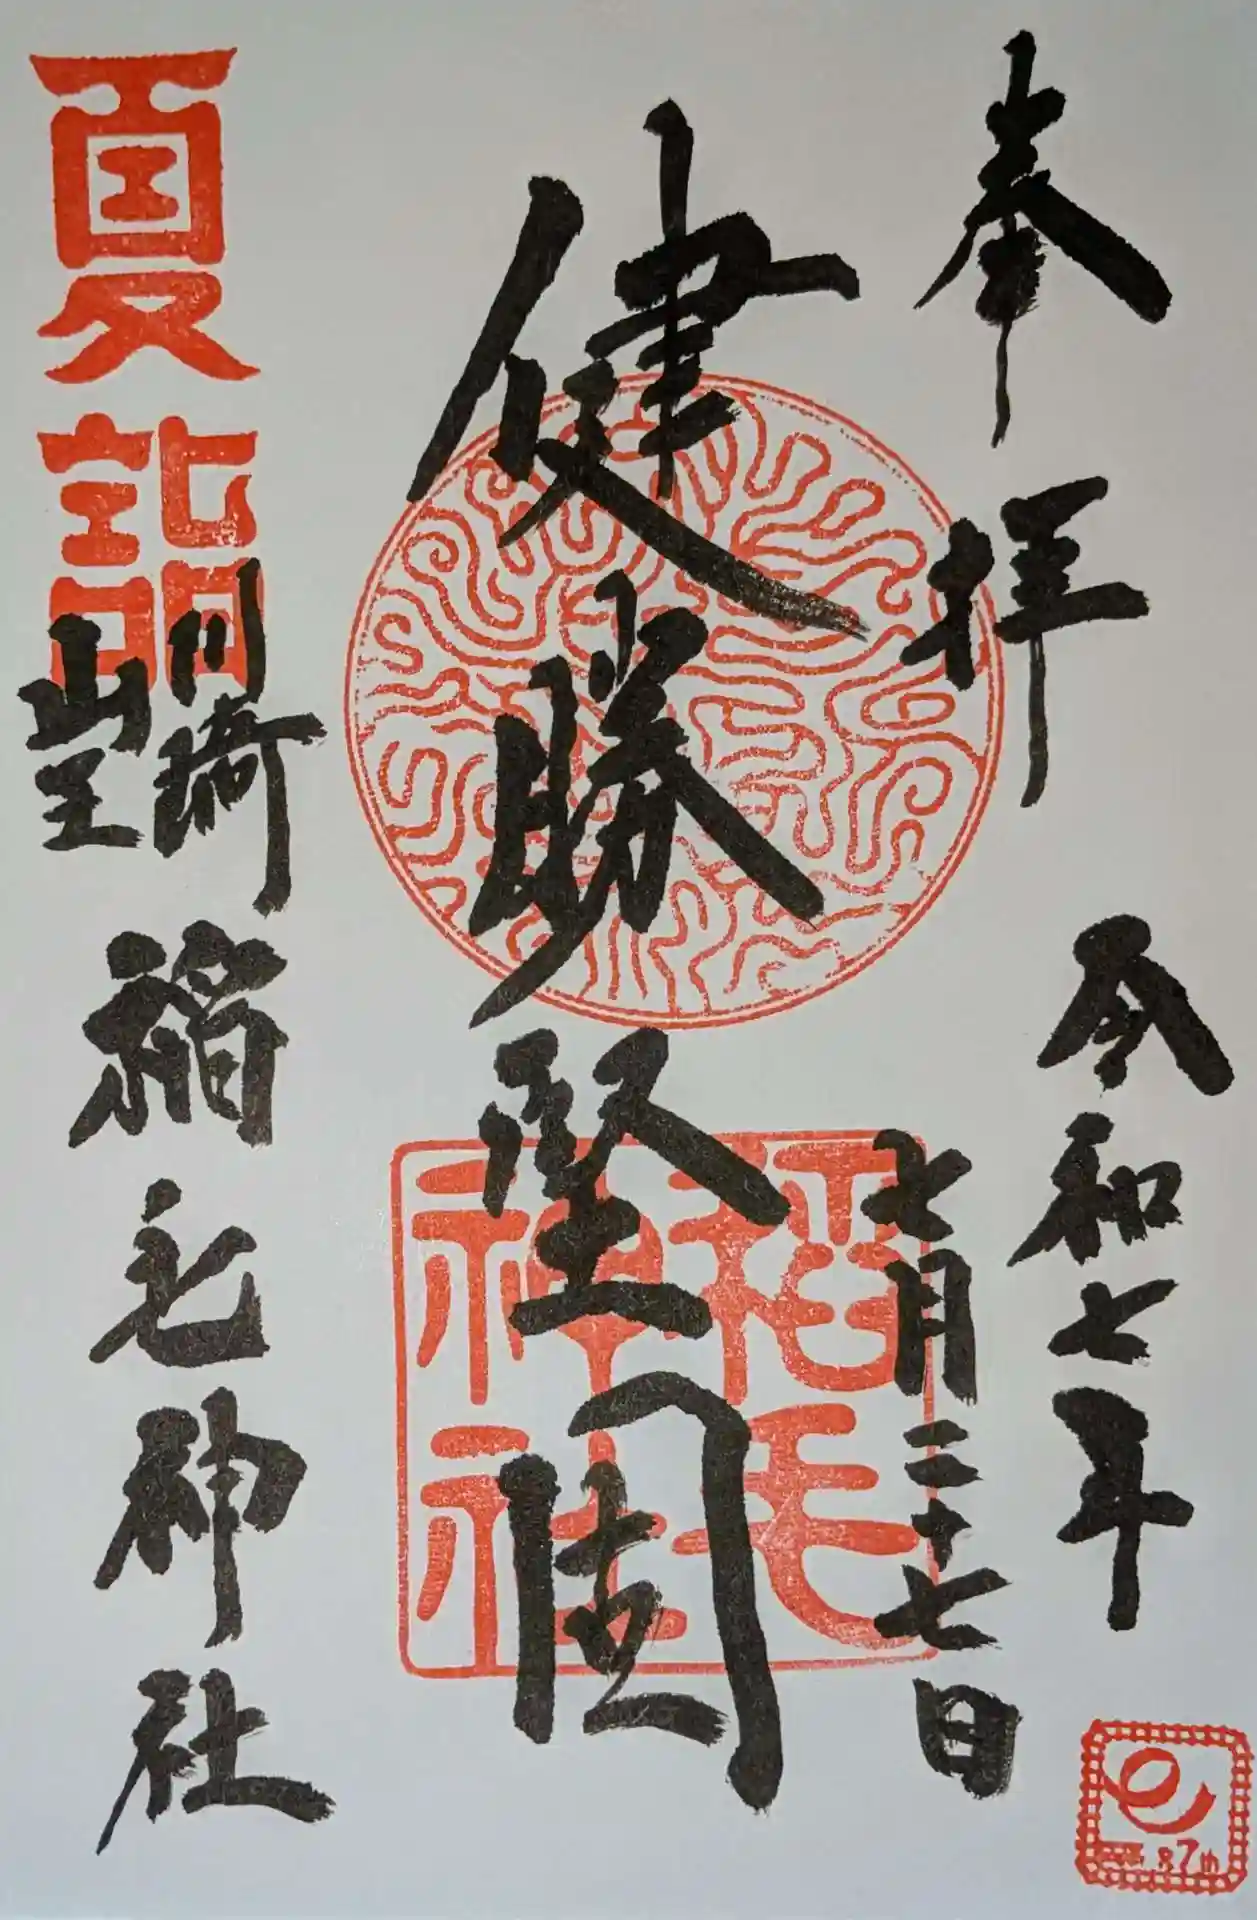 奉拝
令和七年
七月二十七日
健勝堅固
稲毛
神社
夏詣
川崎
山王
稲毛神社
87th